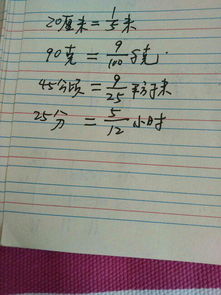 20厘米=1/5米
90克=9/100千克.
45公顷=9/25平方千米
25分=5/12小时